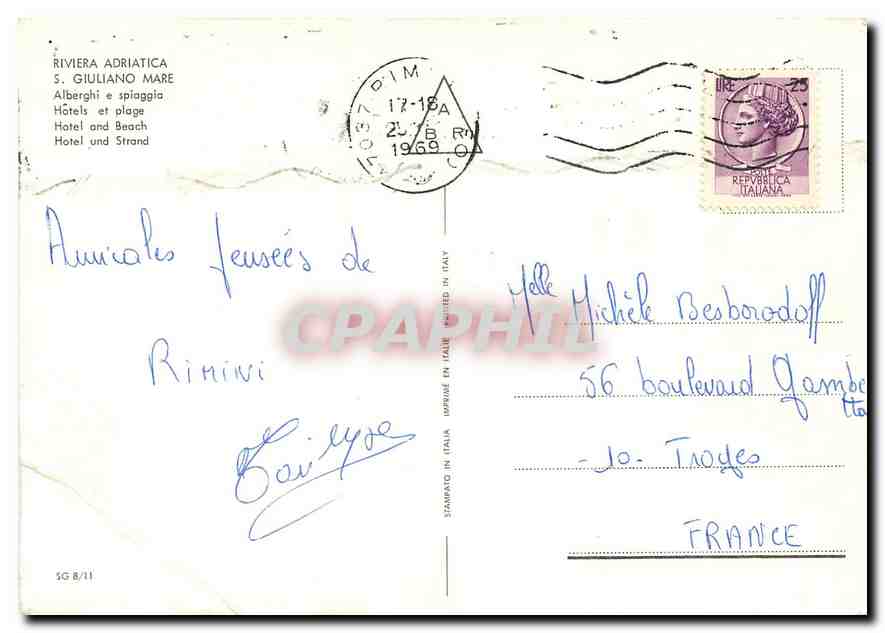 RIVIERA ADRIATICA
S. GIULIANO MARE
Alberghi e spiaggia
Hôtels et plage
Hotel and Beach
Hotel und Strand
17-18
1969
LIRE 25
POSTE
REPVBBLICA
ITALIANA
Amicales pensées de
Rimini
STAMPATO IN ITALIA IMPRIMÉ EN ITALIE PRINTED IN ITALY
CPAPHIL
Melle Michèle Besborodoff
56 boulevard Gambe
tta
-10- Troyes
FRANCE
SG 8/11